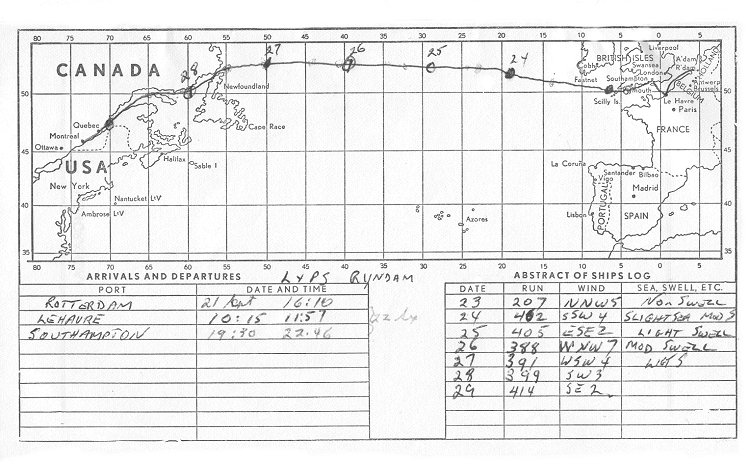 80 75 70 65 60 55 50 45 40 35 30 25 20 15 10 5 0 5
28 27 26 25 24
CANADA
BRITISH ISLES
Liverpool
Cobh
Fastnet
Swansea
London
Southampton
Plymouth
Scilly Is.
HOLLAND
A'dam
R'dam
Antwerp
Brussels
BELGIUM
Le Havre
Paris
FRANCE
50
50
Newfoundland
Cape Race
Quebec
Montreal
Ottawa
45
45
USA
Halifax
Sable I
New York
Nantucket LtV
Ambrose LtV
40
40
La Coruña
Santander
Bilbao
Vigo
Madrid
PORTUGAL
SPAIN
Lisbon
Azores
35
35
80 75 70 65 60 55 50 45 40 35 30 25 20 15 10 5 0 5
ARRIVALS AND DEPARTURES
RYNDAM
PORT DATE AND TIME
ROTTERDAM 21 16:10
LEHAVRE 10:15 11:57
SOUTHAMPTON 19:30 22:46
ABSTRACT OF SHIPS LOG
DATE RUN WIND SEA, SWELL, ETC.
23 207 NNW5 NO n SWELL
24 412 SSW 4 SLIGHT SEA MOD S
25 405 ESE2 LIGHT SWELL
26 388 WNW7 MOD SWELL
27 391 WSW 4
28 399 SW3
29 414 SE 2